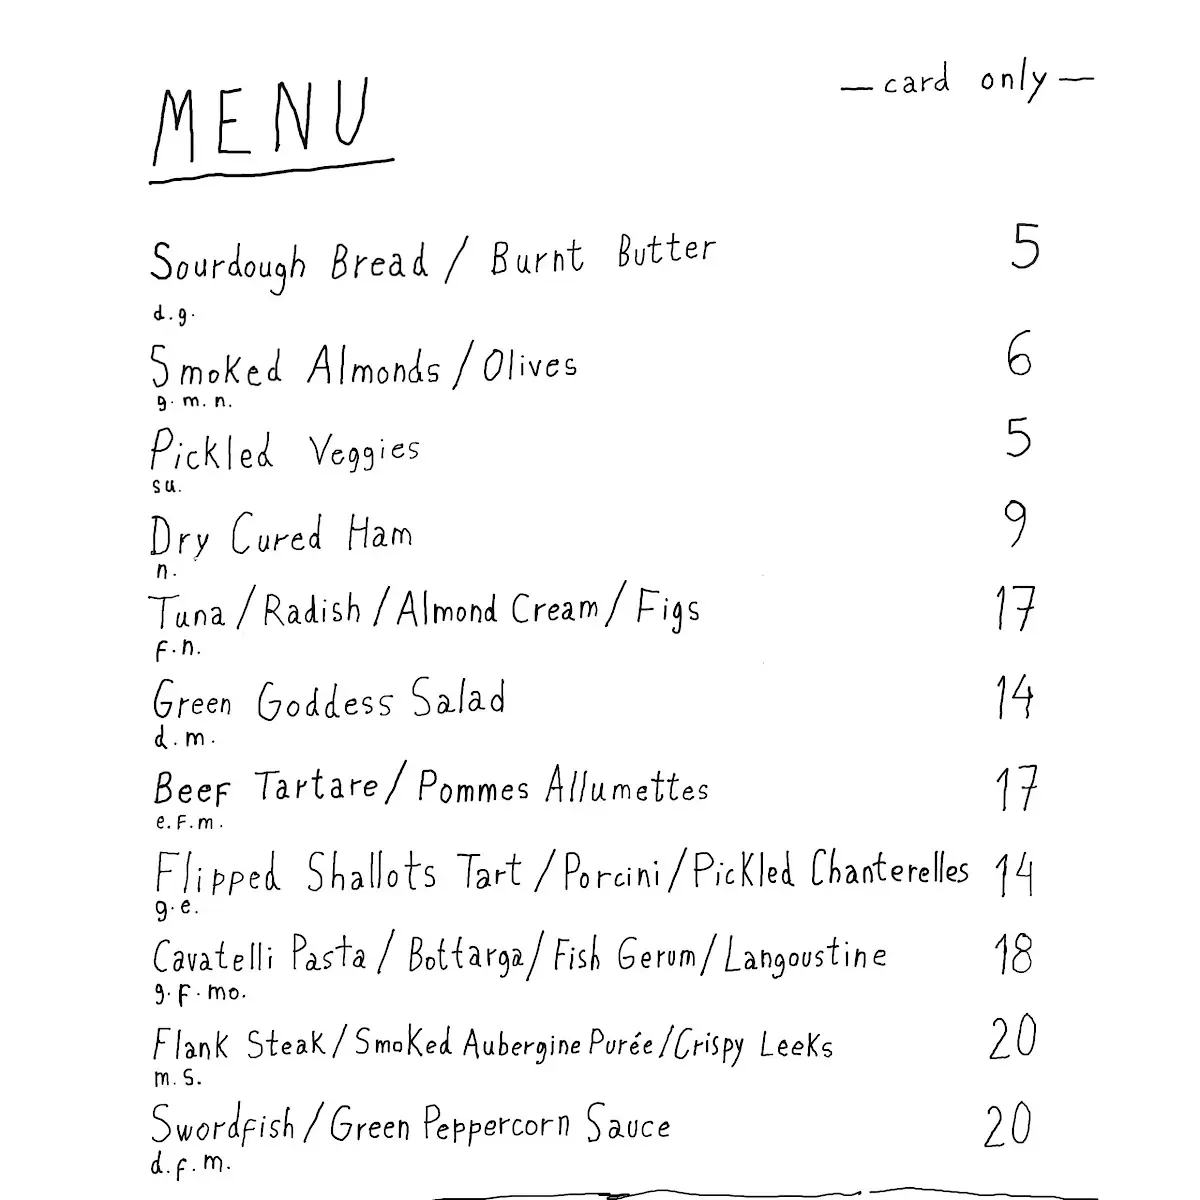 — card only —
MENU
Sourdough Bread / Burnt Butter 5
d.g.
Smoked Almonds / Olives 6
g.m.n.
Pickled Veggies 5
su.
Dry Cured Ham 9
n.
Tuna / Radish / Almond Cream / Figs 17
f.n.
Green Goddess Salad 14
d.m.
Beef Tartare / Pommes Allumettes 17
e.f.m.
Flipped Shallots Tart / Porcini / Pickled Chanterelles 14
g.e.
Cavatelli Pasta / Bottarga / Fish Gerum / Langoustine 18
g.f.mo.
Flank Steak / Smoked Aubergine Purée / Crispy Leeks 20
m.s.
Swordfish / Green Peppercorn Sauce 20
d.f.m.